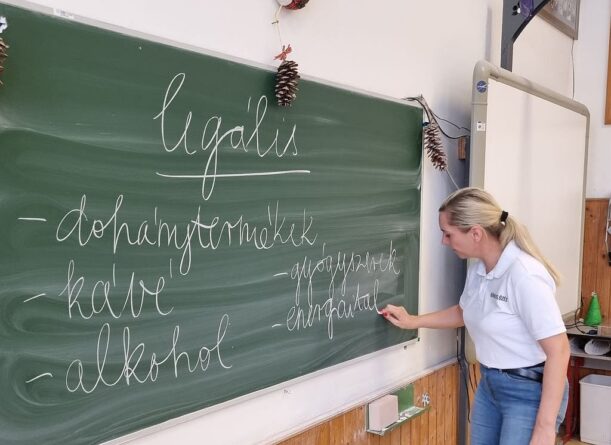 legális
- dohánytermékek
- kávé
- alkohol
- gyógyszerek
- energiaital